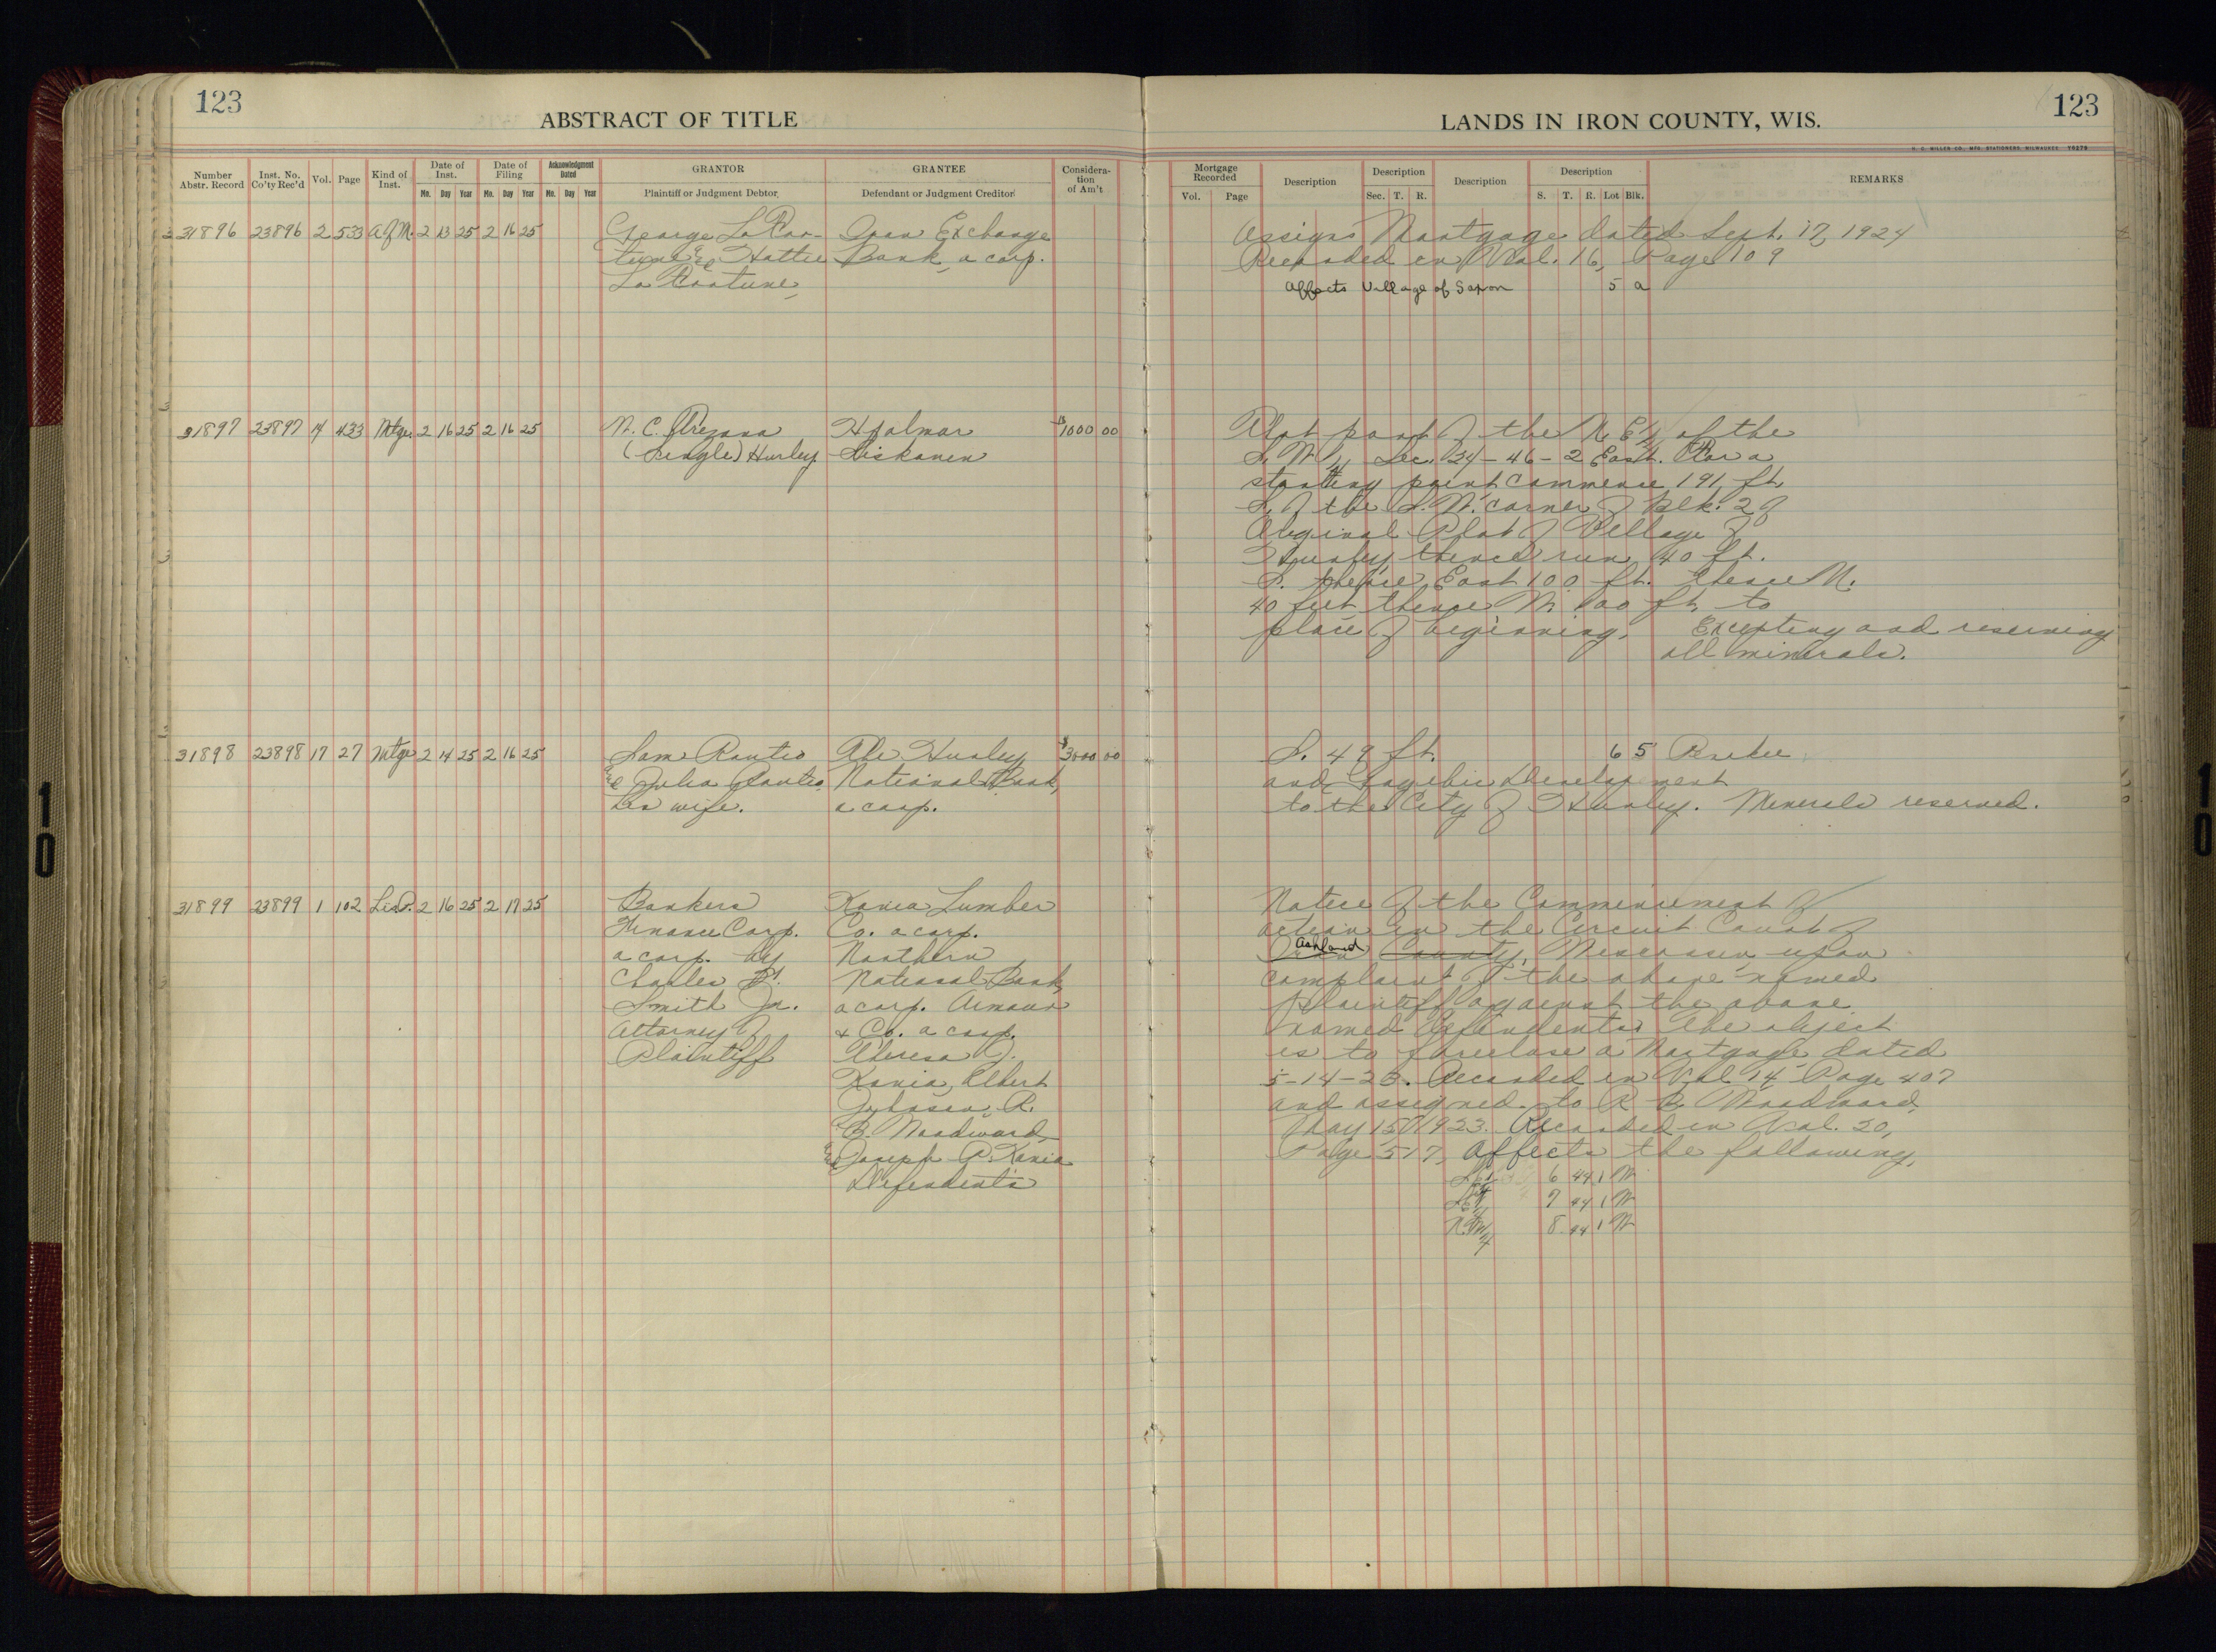 123
ABSTRACT OF TITLE
LANDS IN IRON COUNTY, WIS.
123
H. C. MILLER CO., MFG. STATIONERS, MILWAUKEE
Number Abstr. Record
Inst. No. Co'ty Rec'd
Vol.
Page
Kind of Inst.
Date of Inst.
Mo. Day Year
Date of Filing
Mo. Day Year
Acknowledgment Dated
Mo. Day Year
GRANTOR
Plaintiff or Judgment Debtor
GRANTEE
Defendant or Judgment Creditor
Considera- tion of Am't
Mortgage Recorded
Vol. Page
Description
Description
Sec. T. R.
Description
Description
S. T. R. Lot Blk.
REMARKS
31896 23896 2 533 A of M. 2 13 25 2 16 25
George La For-
tune & Hattie
La Fortune
Iron Exchange
Bank, a corp.
Assigns Mortgage dated Sept. 17, 1924
Recorded in Vol. 16, Page 109
Affects Village of Saxon 5 a
31897 23897 14 433 Mtge. 2 16 25 2 16 25
N. C.
(Single) Hurley
Hjalmar
Liskanen
$1000 00
That part of the N.E.1/4 of the
Sec. 24-46-2 East. For a
starting point commence 191 ft.
S. of the S.W. corner of Blk. 2 of
Original Plat of Village of
Hurley, thence run 40 ft.
S. thence East 100 ft. thence N.
40 feet thence W. 100 ft. to
place of beginning. Excepting and reserving
all minerals.
31898 23898 17 27 Mtge 2 14 25 2 16 25
Sam Rautio
& Julia Rautio,
his wife.
The Hurley
National Bank,
a corp.
$3000 00
S. 49 ft. 6 5
and
to the City of Hurley. Minerals reserved.
31899 23899 1 102 Lis P. 2 16 25 2 17 25
Bankers
Finance Corp.
a corp. by
Charles
Smith Jr.
Attorney of
Plaintiff
Kania Lumber
Co. a corp.
Northern
National Bank,
a corp. Armour
& Co. a corp.
Theresa J.
Kania, Albert
Johnson, R.
B. Woodward,
& Joseph P. Kania
Defendents
Notice of the Commencement of
action in the Circuit Court of
Ashland
Iron County, Wisconsin upon
complaint of the above named
plaintiff against the above
named defendents. The object
is to foreclose a Mortgage dated
5-14-23. Recorded in Vol 14 Page 407
and assigned to R. B. Woodward,
May 15, 1923. Recorded in Vol. 20,
Page 517, Affects the following,
6 44 1 W
7 44 1 W
N.W.1/4 8 44 1 W
10
10